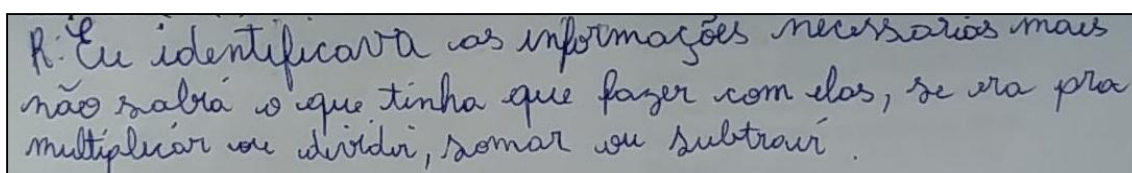 R: Eu identificava as informações necessarias mais
não sabia o que tinha que fazer com elas, se era pra
multiplicar ou dividir, somar ou subtrair.